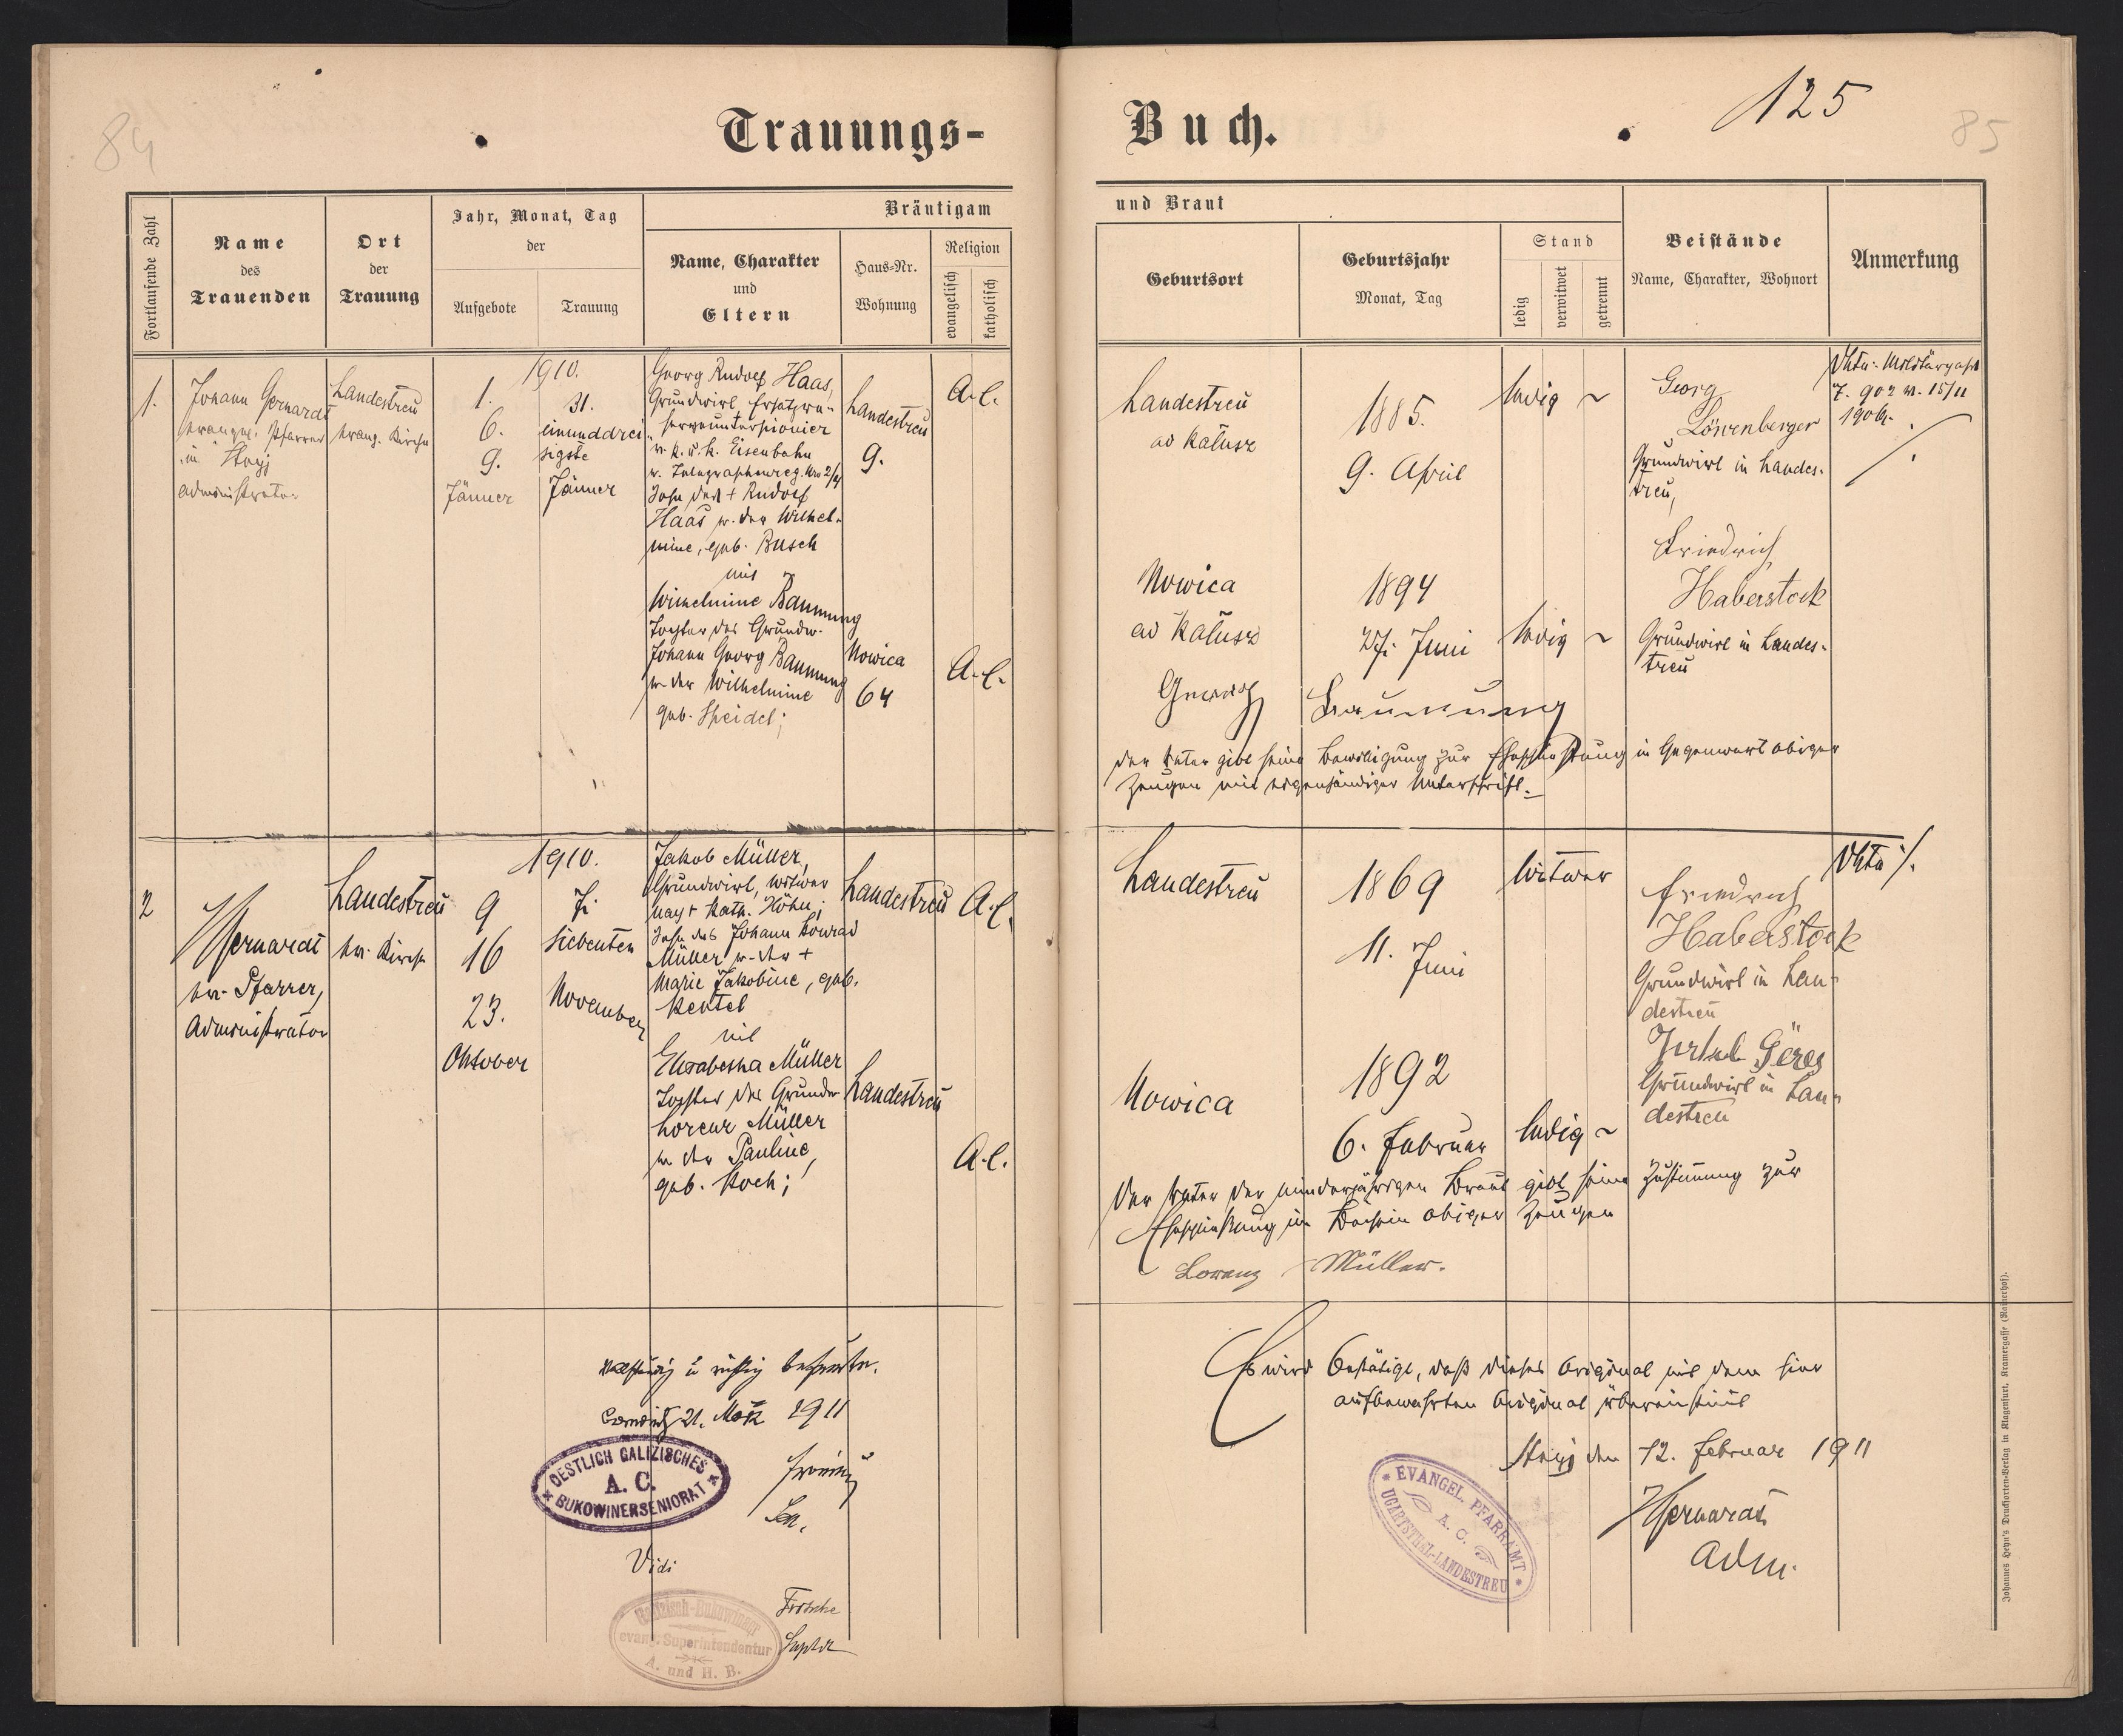 84
Trauungs-
Buch.
125
85
Fortlaufende Zahl
Name
des
Trauenden
Ort
der
Trauung
Jahr, Monat, Tag
der
Aufgebote
Trauung
Bräutigam
Name, Charakter
und
Eltern
Haus-Nr.
Wohnung
Religion
evangelisch
katholisch
und Braut
Geburtsort
Geburtsjahr
Monat, Tag
Stand
ledig
verwitwet
getrennt
Beistände
Name, Charakter, Wohnort
Anmerkung
1.
Johann Gernardt
evangel. Pfarrer
in Stryj
Administrator
Landestreu
evang. Kirche
1910.
1.
6.
9.
Jänner
31.
einunddrei
sigste
Jänner
Georg Rudolf Haas,
Grundwirt, Ersatzre-
serveunterpionier
k. u. k. Eisenbahn
u. Telegraphenreg.
Sohn des + Rudolf
Haas u. der Wilhel-
mine, geb. Busch
mit
Wilhelmine Baumung
Tochter des Grundw.
Johann Georg Baumung
u. der Wilhelmine
geb. Speidel;
Landestreu
9.
Nowica
64
A.C.
A.C.
Landestreu
ad Kałusz
1885.
9. April
ledig ~
Georg
Löwenberger
Grundwirt in Landes-
treu,
1909.
Nowica
ad Kałusz
1894
27. Juni
ledig ~
Friedrich
Haberstock
Grundwirt in Landes-
treu
Georg Baumung
Der Vater gibt seine Bewilligung zur Eheschließung in Gegenwart obiger
Zeugen mit eigenhändiger Unterschrift.
2
Gernardt
ev. Pfarrer,
Administrator
Landestreu
ev. Kirche
1910.
9
16
23.
Oktober
7.
siebenten
November
Jakob Müller,
Grundwirt, Witwer
nach + Kath. Höhn;
Sohn des Johann Konrad
Müller u. der +
Marie Jakobine, geb.
Kentel
mit
Elisabetha Müller
Tochter des Grundw
Lorenz Müller
u. der Pauline,
geb. Koch;
Landestreu
Landestreu
A.C.
A.C.
Landestreu
1869
11. Juni
Witwer
Friedrich
Haberstock
Grundwirt in Lan-
destreu
Jakob
Grundwirt in Lan-
destreu
Nowica
1892
6. Februar
ledig ~
Der Vater der minderjährigen Braut gibt seine Zustimmung zur
Eheschließung im Beisein obiger Zeugen
Lorenz Müller.
Vollständig u richtig befunden.
21. März 1911
Sen.
OESTLICH GALIZISCHES
A. C.
BUKOWINERSENIORAT
Vidi
Fritsche
Suptdt
Galizisch-Bukowinaer
evang. Superintendentur
A. und H. B.
Es wird bestätigt, daß dieses Original mit dem hier
aufbewahrten Original übereinstimmt
Stryj den 12. Februar 1911
Gernardt
Adm.
EVANGEL. PFARRAMT
A. C.
UGARTSTHAL-LANDESTREU
Johannes Heyn's Drucksorten-Verlag in Klagenfurt, Kramergasse (Rainerhof).